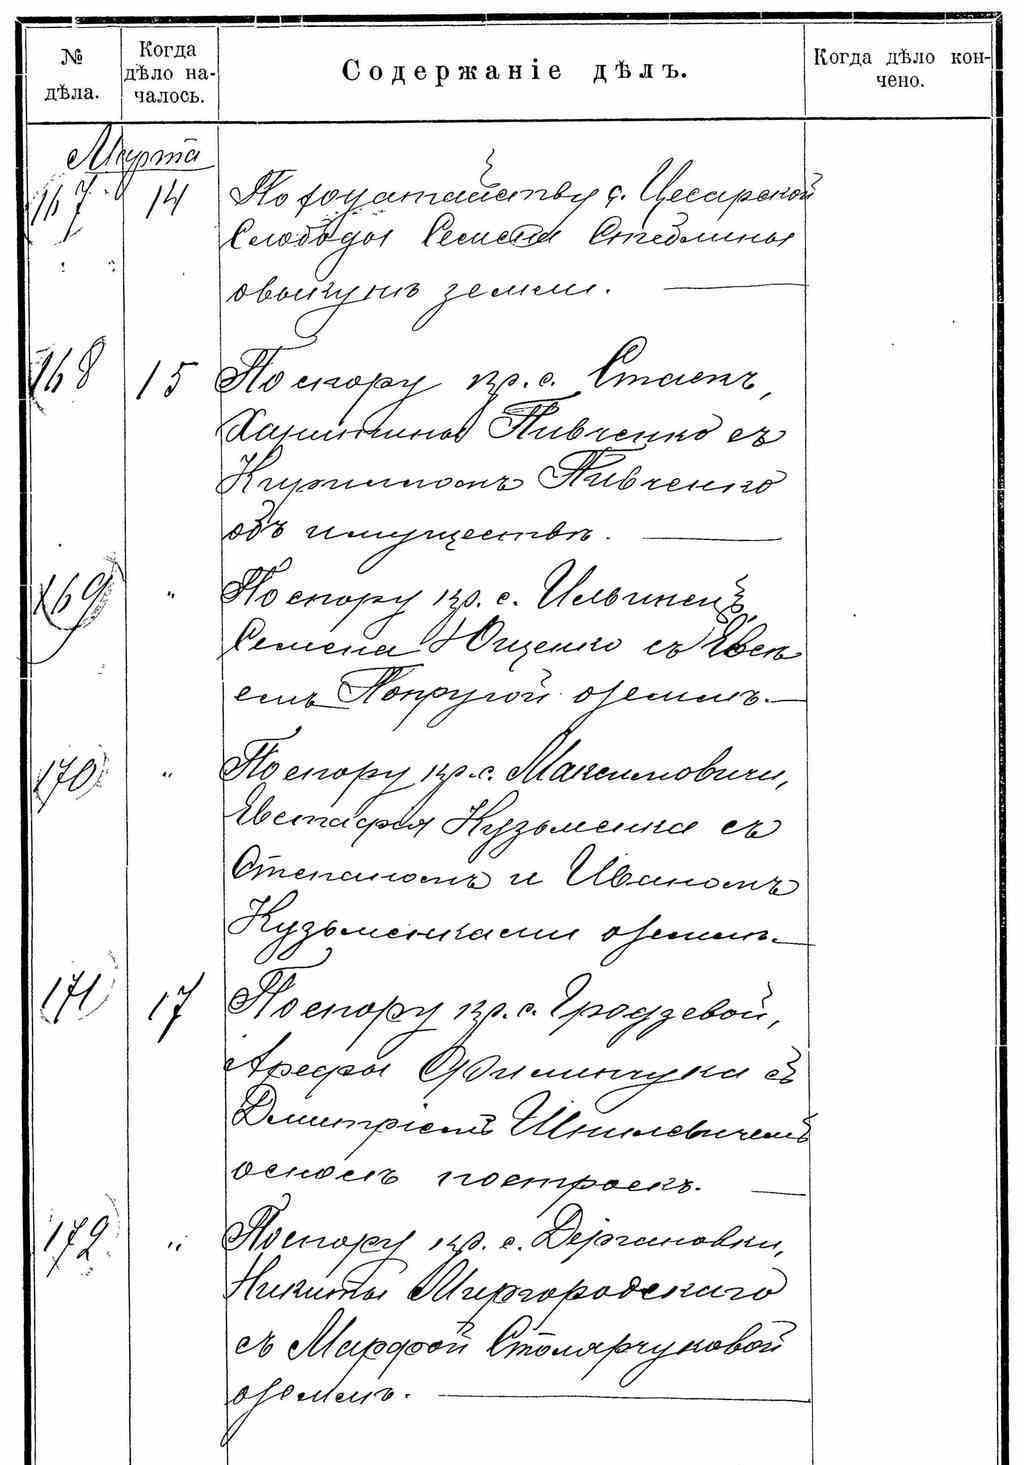 № дѣла.
Когда дѣло на-
чалось.
Содержаніе дѣлъ.
Когда дѣло кон-
чено.
Марта
167 14 По ходатайству с. Цесарской
Слободы Семена Стеблины
о выкупѣ земли.
168 15 По спору кр. с. Стаекъ,
Харитины Пивченко съ
Кирилломъ Пивченко
объ имуществѣ.
169 " По спору кр. с. Ильинецъ,
Семена Ющенко съ Евсѣ
емъ Попругой о землѣ.
170 " По спору кр. с. Максимовичи,
Евстафія Кузьменка съ
Степаномъ и Иваномъ
Кузьменками о землѣ.
171 17 По спору кр. с. Гродзевой,
Арефы Филинчука съ
Дмитріемъ
о сносѣ построекъ.
172 " По спору кр. с. Дергановки,
Никиты Миргородскаго
съ Марфой Столярчуковой
о землѣ.